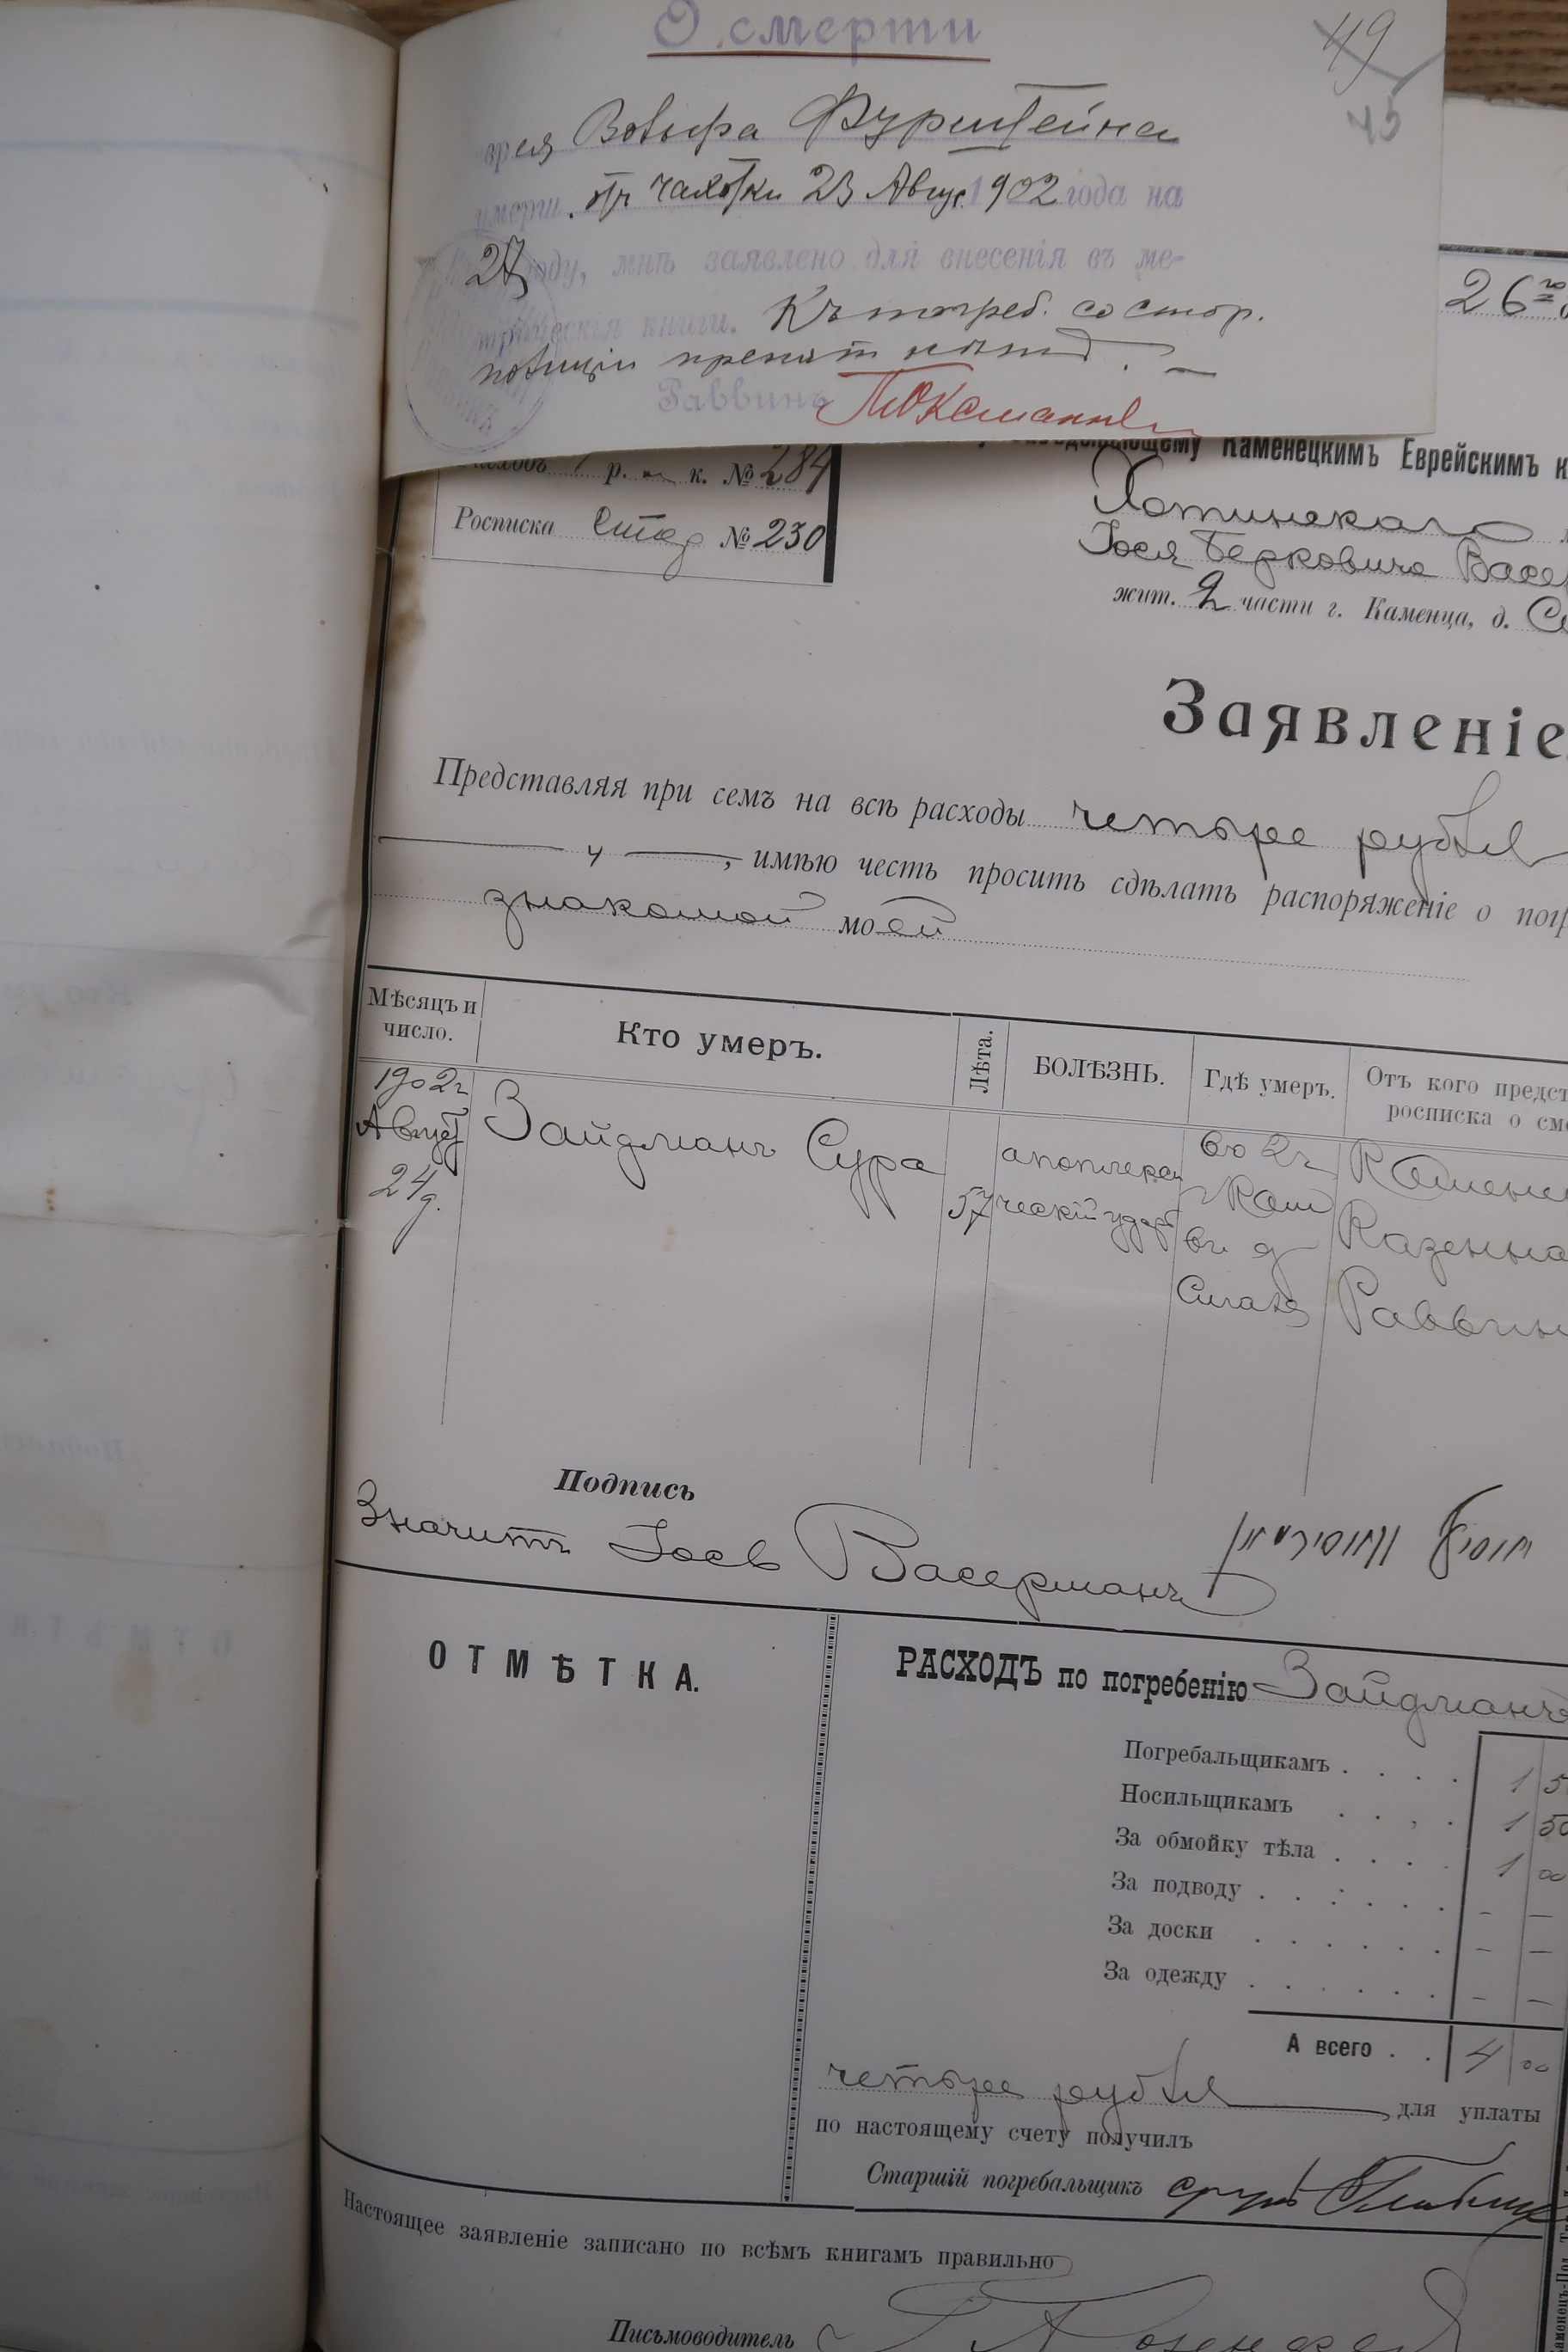 О смерти
49
45
врея Вольфа Фурштейна
умерш. отъ чахотки 23 Авгус. 1902 года на
27 году, мнѣ заявлено для внесенія въ ме-
трическія книги. Къ погреб. со стор.
полиціи препят
Раввинъ
26го
Каменецкимъ Еврейскимъ к
р. к. № 284
Росписка № 230
Хотинскаго
Іося Берковича Васер
жит. 2 части г. Каменца, д.
Заявленіе
Представляя при семъ на всѣ расходы четыре рубля
, имѣю честь просить сдѣлать распоряженіе о погр
знакомой моей
Мѣсяцъ и число.
Кто умеръ.
Лѣта.
БОЛѢЗНЬ.
Гдѣ умеръ.
Отъ кого предст
росписка о сме
1902г
Август
24д.
Зайдманъ Сура
57
апоплекси
ческій ударъ
во 2ч
г Кам
въ д
Каменец
Казенна
Раввин
Подпись
Значитъ Іосъ Васерманъ
ОТМѢТКА.
РАСХОДЪ по погребенію Зайдманъ
Погребальщикамъ . . . . 1 5
Носильщикамъ . . . . 1 50
За обмойку тѣла . . . . 1 00
За подводу . . . . . . – —
За доски . . . . . . – —
За одежду . . . . . . – —
А всего . . 4 00
четыре рубля для уплаты
по настоящему счету получилъ
Старшій погребальщикъ
Настоящее заявленіе записано по всѣмъ книгамъ правильно
Письмоводитель